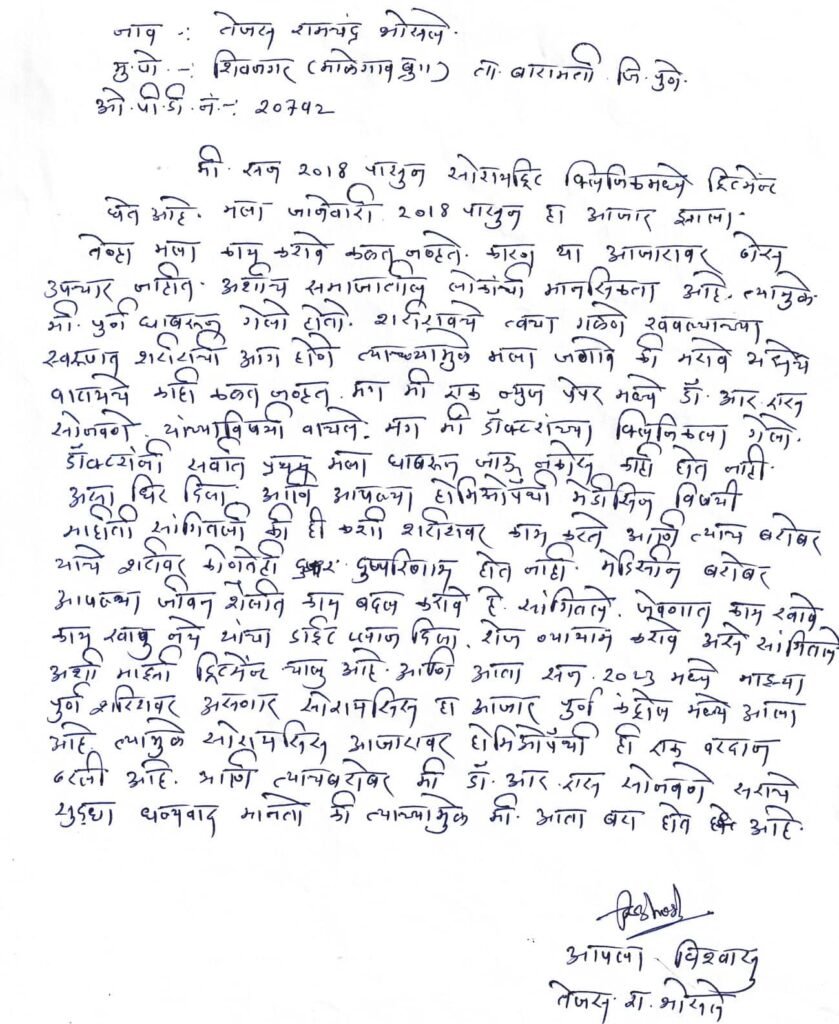 नाव :- तेजस रामचंद्र भोसले.
मु.पो. -: शिवनगर (माळेगाव बु॥) ता. बारामती जि. पुणे.
ओ.पी.डी. नं -: २०७५२
मी. सन २०१8 पासुन सोरायझिट क्लिनिकमध्ये ट्रिटमेंट
घेत आहे. मला जानेवारी २०१8 पासुन हा आजार झाला.
तेव्हा मला काय करावे कळत नव्हते. कारण या आजारावर ठोस
उपचार नाहीत. अशीच समाजातील लोकांची मानसिकता आहे. त्यामुळे
मी. पुर्ण घाबरून गेलो होतो. शरीरावरचे त्वचा गळणे खवल्याच्या
स्वरूपात शरीराची आग होणे त्याच्यामुळे मला जगावे की मरावे
वाटायचे काही कळत नव्हत. मग मी एक न्युज पेपर मध्ये डॉ. आर. एस
सोनवणे. यांच्याविषयी वाचले. मग मी डॉक्टरांच्या क्लिनिकला गेलो.
डॉक्टरांनी सर्वात प्रथम मला घाबरून जाऊ नकोस काही होत नाही.
असा धिर दिला. आणि आपल्या होमिओपॅथी मेडीसिन विषयी
माहीती सांगितली की ही कशी शरीरावर काम करते आणि त्याच बरोबर
याचे शरीवर कोणतेही दुष्परिणाम होत नाही. मेडिसीन बरोबर
आपल्या जीवन शैलीत काय बदल करावे हे. सांगितले. जेवणात काय खावे
काय खावु नये यांचा डाईट प्लान दिला. रोज व्यायाम करावे असे सांगितले
अशी माझी ट्रिटमेंट चालु आहे. आणि आता सन. २०२३ मध्ये माझ्या
पुर्ण शरिरावर असणार सोरायसिस हा आजार पुर्ण कंट्रोल मध्ये आला
आहे. त्यामुळे सोरायसिस आजारावर होमिओपॅथी ही एक वरदान
ठरली आहे. आणि त्याचबरोबर मी डॉ. आर. एस सोनवणे सरांचे
सुद्धा धन्यवाद मानतो की त्याच्यामुळे मी. आता बरा होत आहे.
आपला विश्वासु
तेजस रा. भोसले